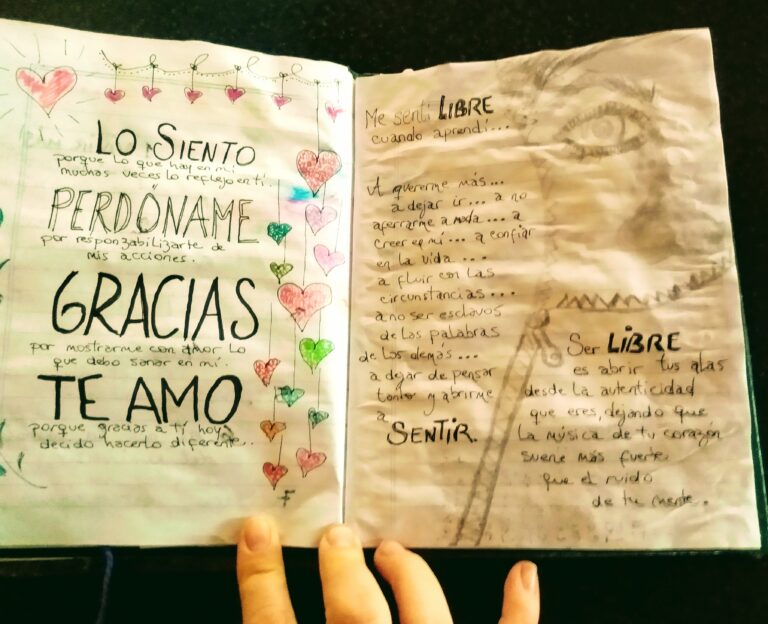 LO SIENTO
porque lo que hay en mí
muchas veces lo reflejo en ti.
PERDÓNAME
por responzabilizarte de
mis acciones.
GRACIAS
por mostrarme con amor lo
que debo sanar en mí.
TE AMO
porque gracias a tí hoy
decido hacerlo diferente..
Me sentí LIBRE
cuando aprendí...
A quererme más...
a dejar ir... a no
aferrarme a nada... a
creer en mí... a confiar
en la vida...
a fluir con las
circunstancias...
a no ser esclavos
de las palabras
de los demás...
a dejar de pensar
tanto y abrirme
a
SENTIR.
Ser LIBRE
es abrir tus alas
desde la autenticidad
que eres, dejando que
la música de tu corazón
suene más fuerte
que el ruido
de tu mente.